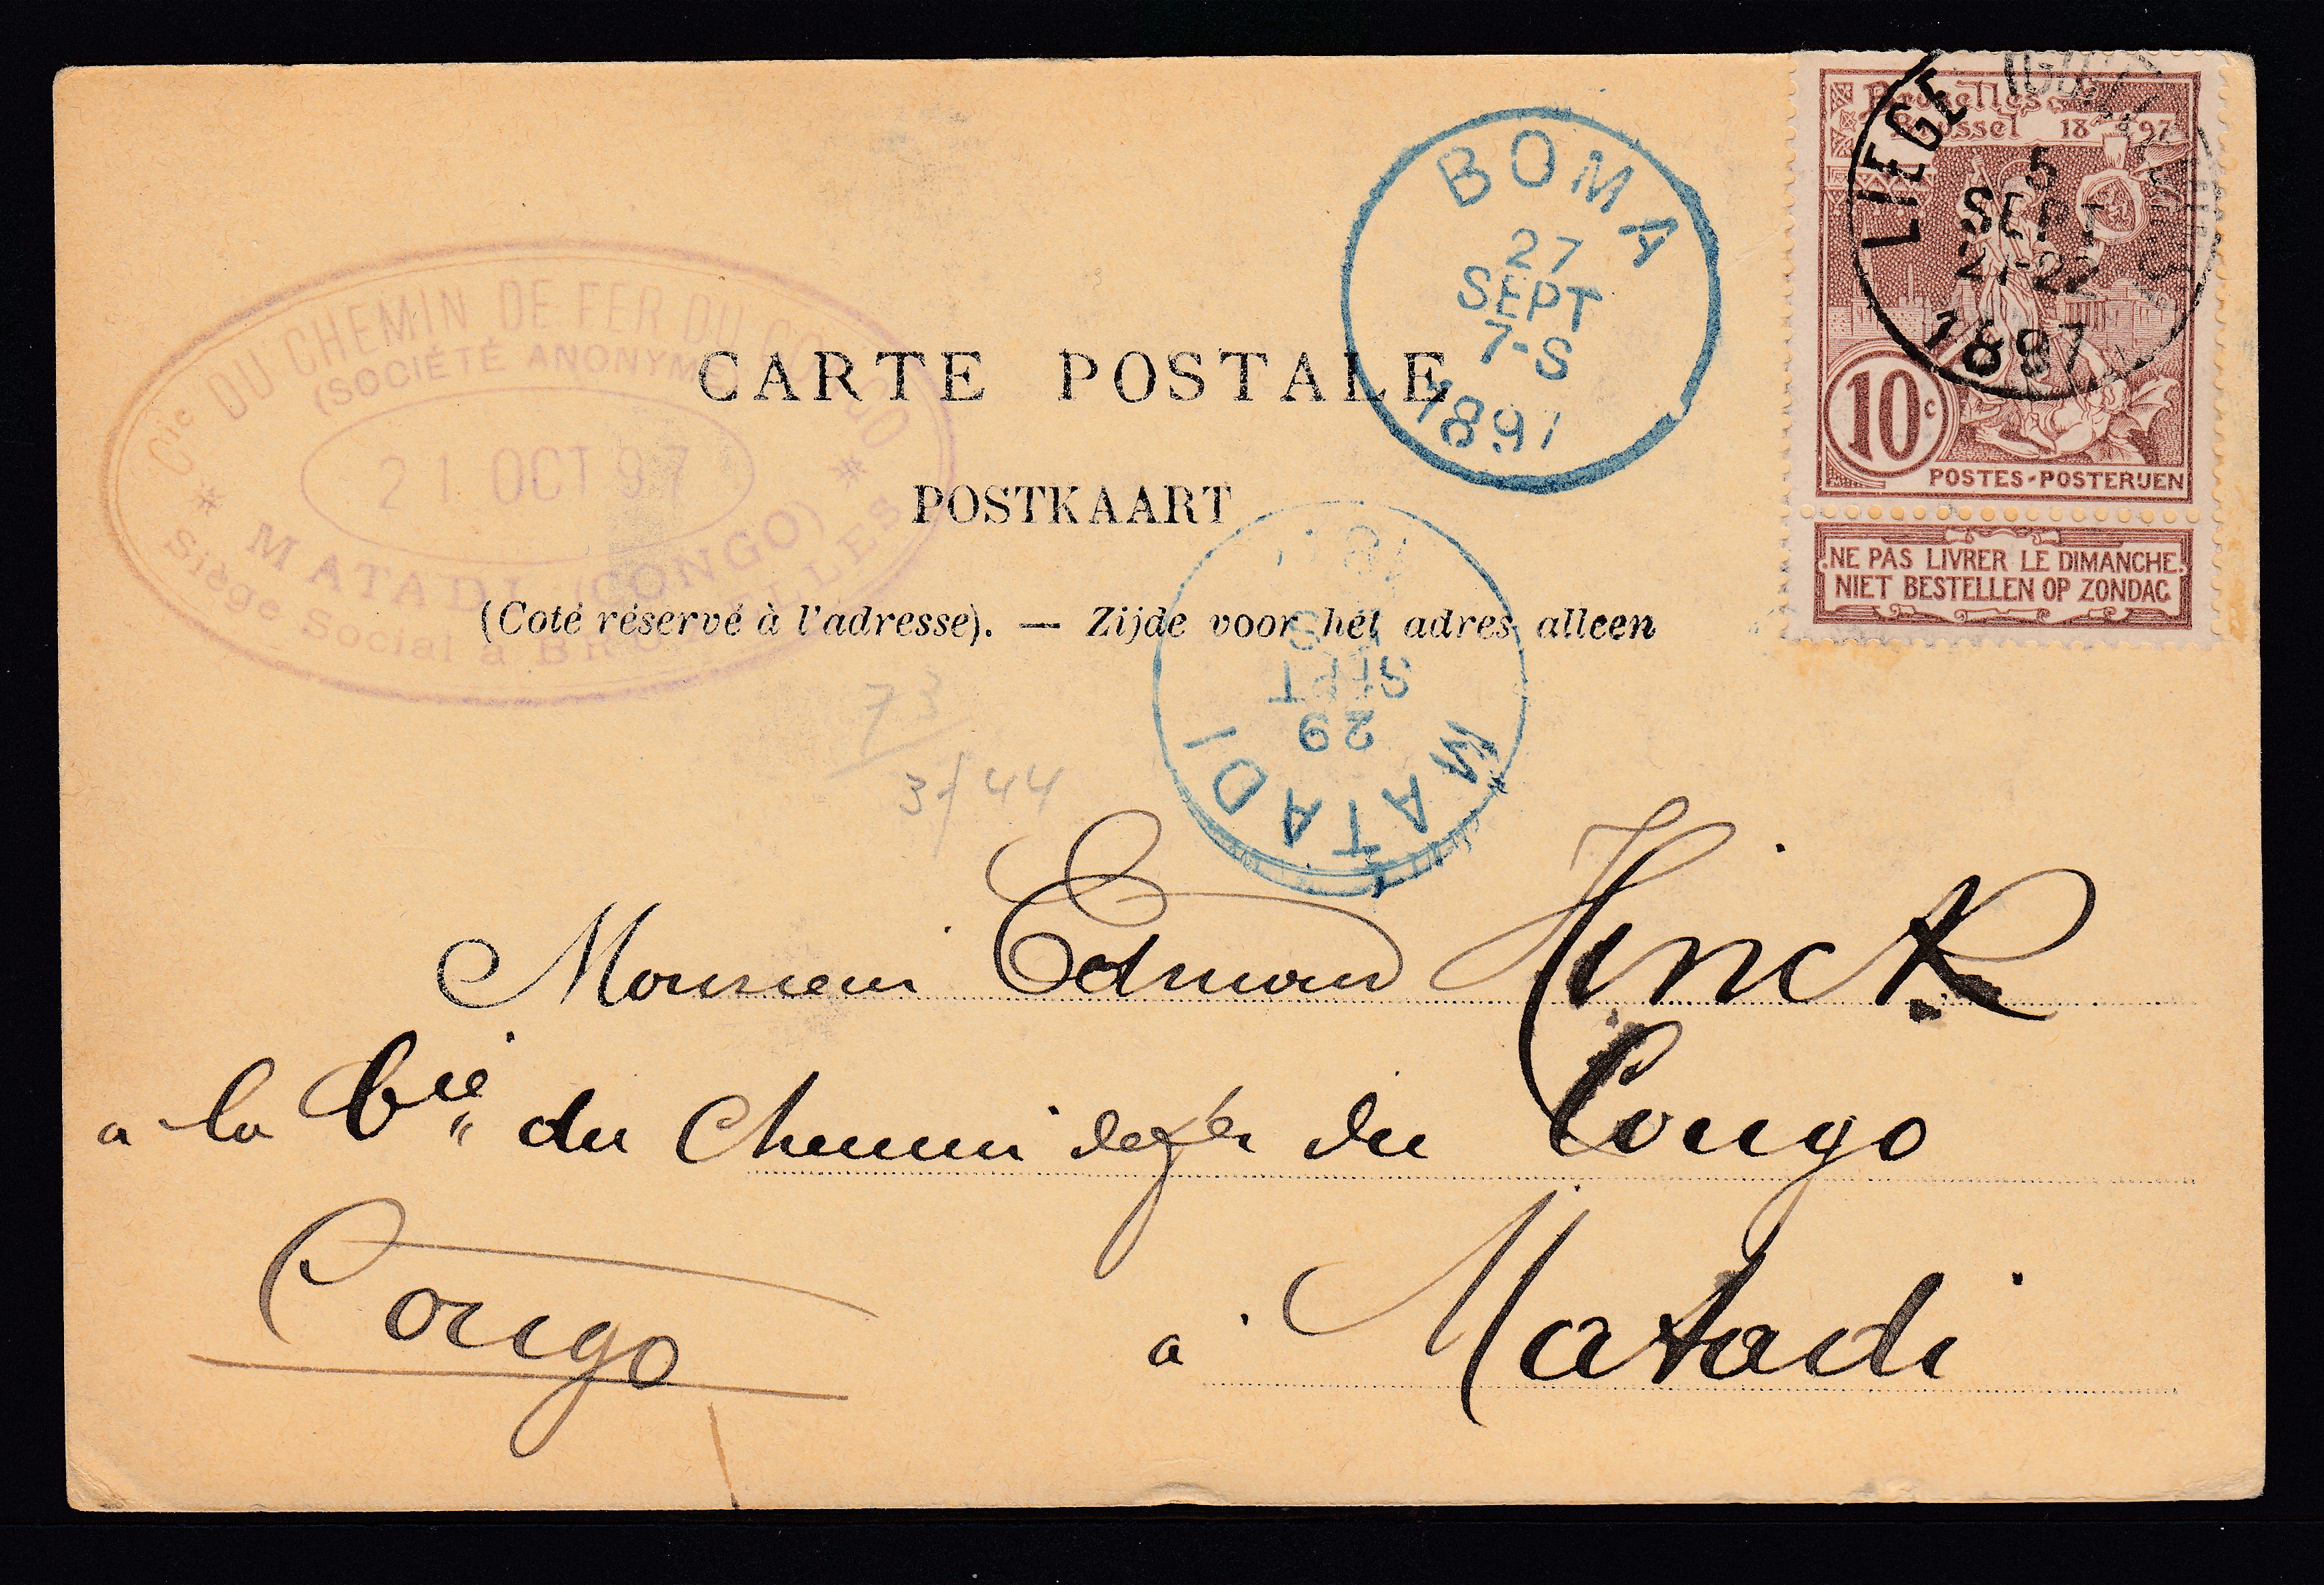 CARTE POSTALE
POSTKAART
(Coté réservé à l'adresse). — Zijde voor het adres alleen
Cie DU CHEMIN DE FER DU CONGO
(SOCIÉTÉ ANONYME)
21 OCT 97
* MATADI (CONGO) *
Siège Social à BRUXELLES
BOMA
27
SEPT
7-S
1897
MATADI
29
SEPT
LIEGE
5
SEPT
21-22
1897
Bruxelles
Brussel 1897
10c
POSTES-POSTERIJEN
NE PAS LIVRER LE DIMANCHE.
NIET BESTELLEN OP ZONDAG
73
3/44
Monsieur Edmond Hinck
a la Cie du Chemin de fer du Congo
Congo a Matadi